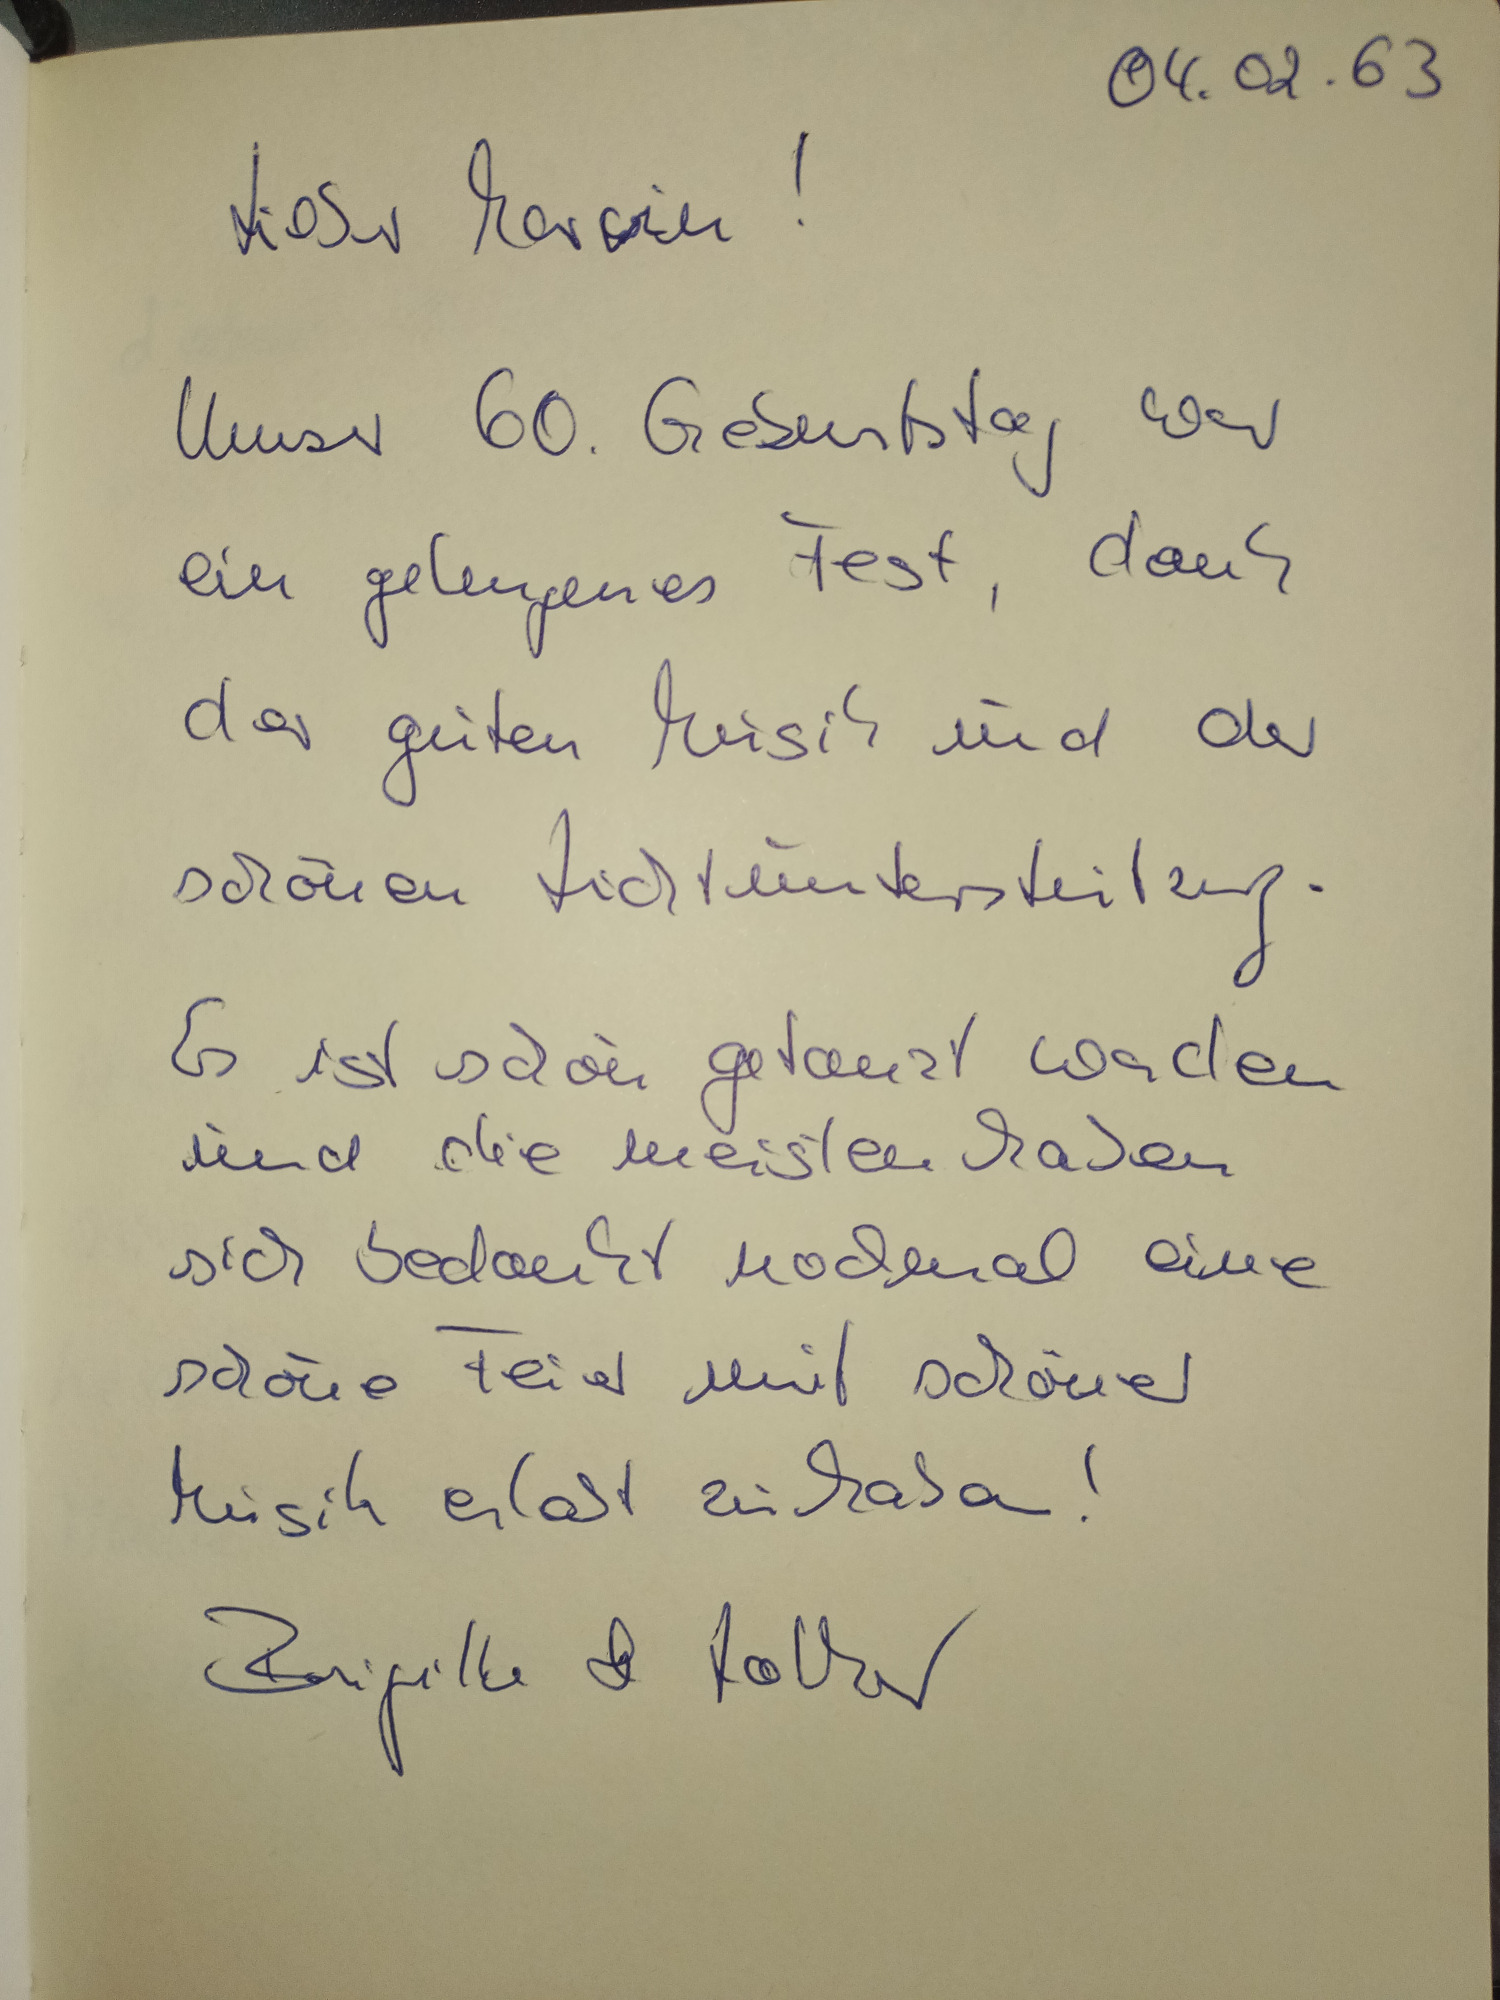 04.02.63
Lieber Marvin!
Unser 60. Geburtstag war
ein gelungenes Fest, dank
der guten Musik und der
schönen Lichtunterstützung.
Es ist schön getanzt worden
und die meisten haben
sich bedankt nochmal eine
schöne Feier mit schöner
Musik erlebt zu haben!
Brigitte & Lothar